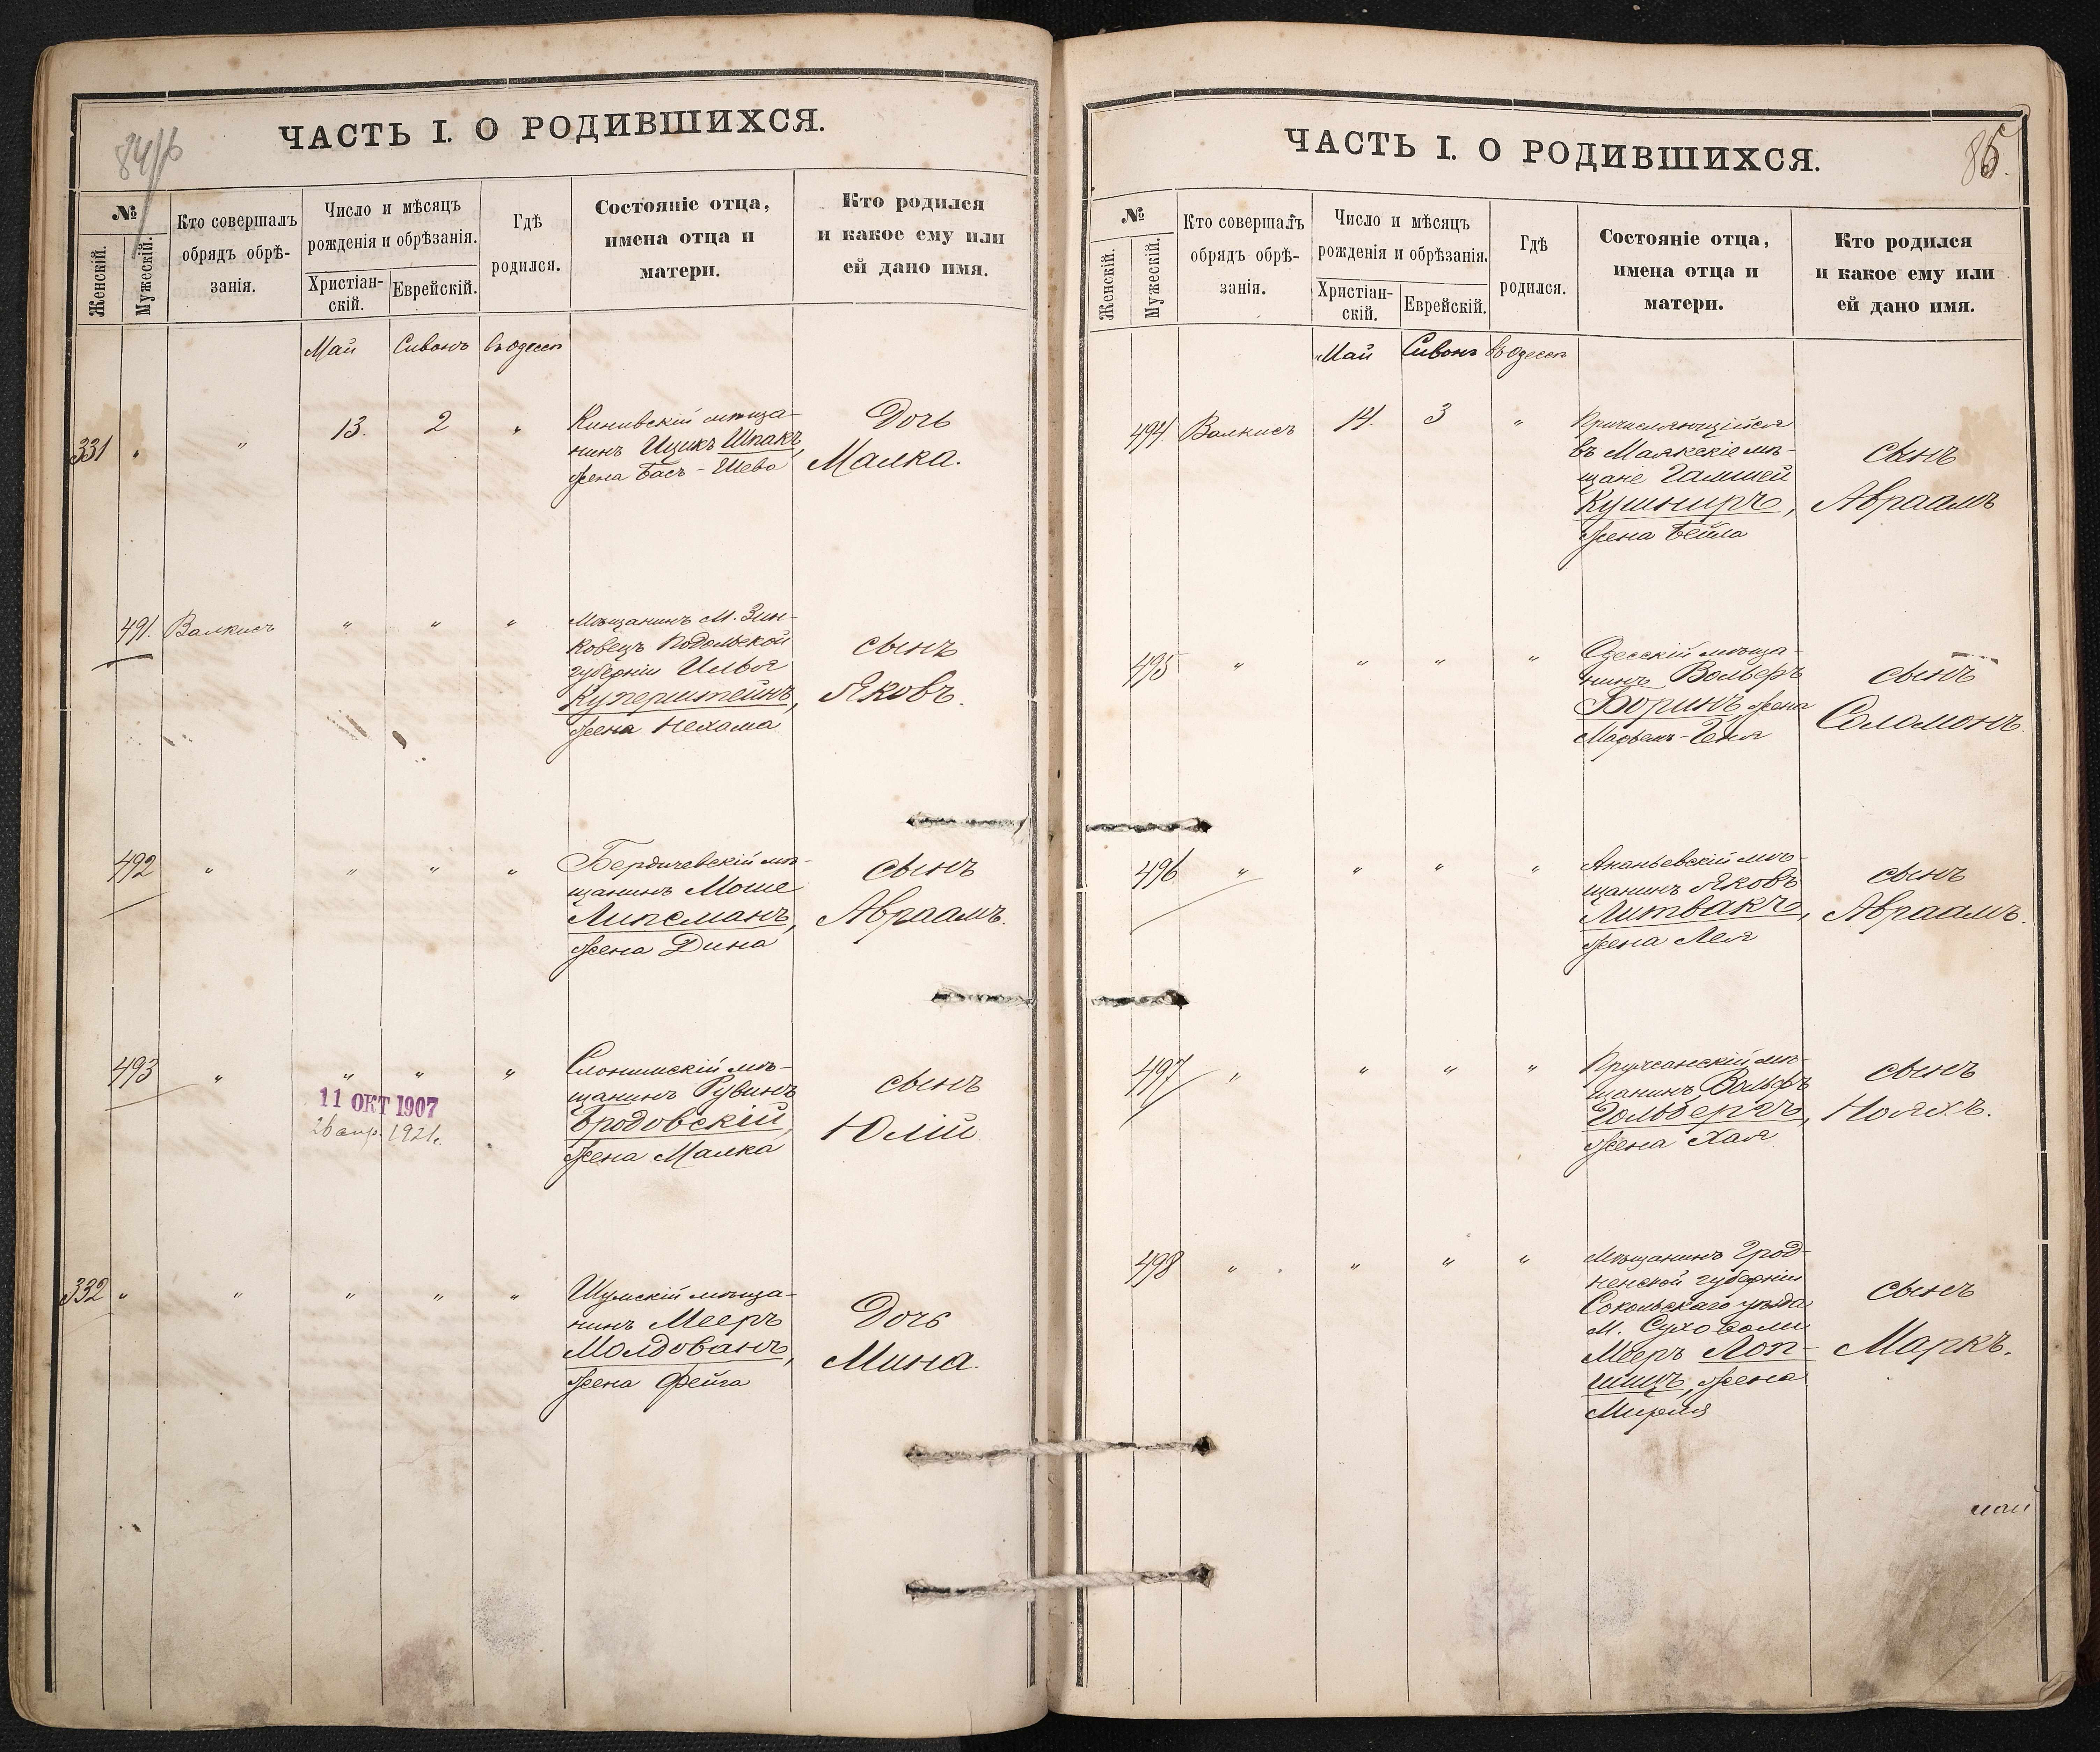 ЧАСТЬ I. О РОДИВШИХСЯ.
№
Женскій.
Мужескій.
Кто совершалъ
обрядъ обрѣ-
занія.
Число и мѣсяцъ
рожденія и обрѣзанія.
Христіан-
скій.
Еврейскій.
Гдѣ
родился.
Состояніе отца,
имена отца и
матери.
Кто родился
и какое ему или
ей дано имя.
Май Сивонъ въ Одессѣ
331 " " 13. 2 "
мѣща-
нинъ Ицикъ Шпакъ,
жена Бася-Шева
Дочь
Малка.
491. Валкисъ " " "
Мѣщанинъ м. Зин-
ковецъ Подольской
губерніи Илья
Куперштейнъ,
жена Нехама
сынъ
Яковъ.
492 " " " "
Бердичевскій мѣ-
щанинъ Моше
Липсманъ,
жена Дина
сынъ
Авраамъ.
493 " " " "
11 ОКТ 1907
26 апр. 1921г.
Слонимскій мѣ-
щанинъ Рувинъ
Бродовскій,
жена Малка
сынъ
Юлій
332 " " " " "
Шумскій мѣща-
нинъ Мееръ
Молдованъ,
жена Фейга
Дочь
Мина.
ЧАСТЬ I. О РОДИВШИХСЯ.
85.
№
Женскій.
Мужескій.
Кто совершалъ
обрядъ обрѣ-
занія.
Число и мѣсяцъ
рожденія и обрѣзанія.
Христіан-
скій.
Еврейскій.
Гдѣ
родился.
Состояніе отца,
имена отца и
матери.
Кто родился
и какое ему или
ей дано имя.
Май Сивонъ въ Одессѣ
494. Валкисъ 14. 3 "
Причисляющійся
въ Маякскіе мѣ-
щане
Кушниръ,
жена Бейла
сынъ
Авраамъ
495 " " " "
Одесскій мѣща-
нинъ Вольфъ
Боринъ жена
Марьемъ-Геня
сынъ
Соломонъ.
496 " " " "
Ананьевскій мѣ-
щанинъ Яковъ
Литвакъ,
жена Лея
сынъ
Авраамъ.
497 " " " "
Пружанскій мѣ-
щанинъ, Вольфъ
Гольдбергъ,
жена Хая
сынъ
Нояхъ.
498 " " " "
Мѣщанинъ Грод-
ненской губерніи
Сокольскаго уѣзда
м. Суховоли
Мееръ Лоп-
шицъ, жена
Мирля
сынъ
Маркъ.
май